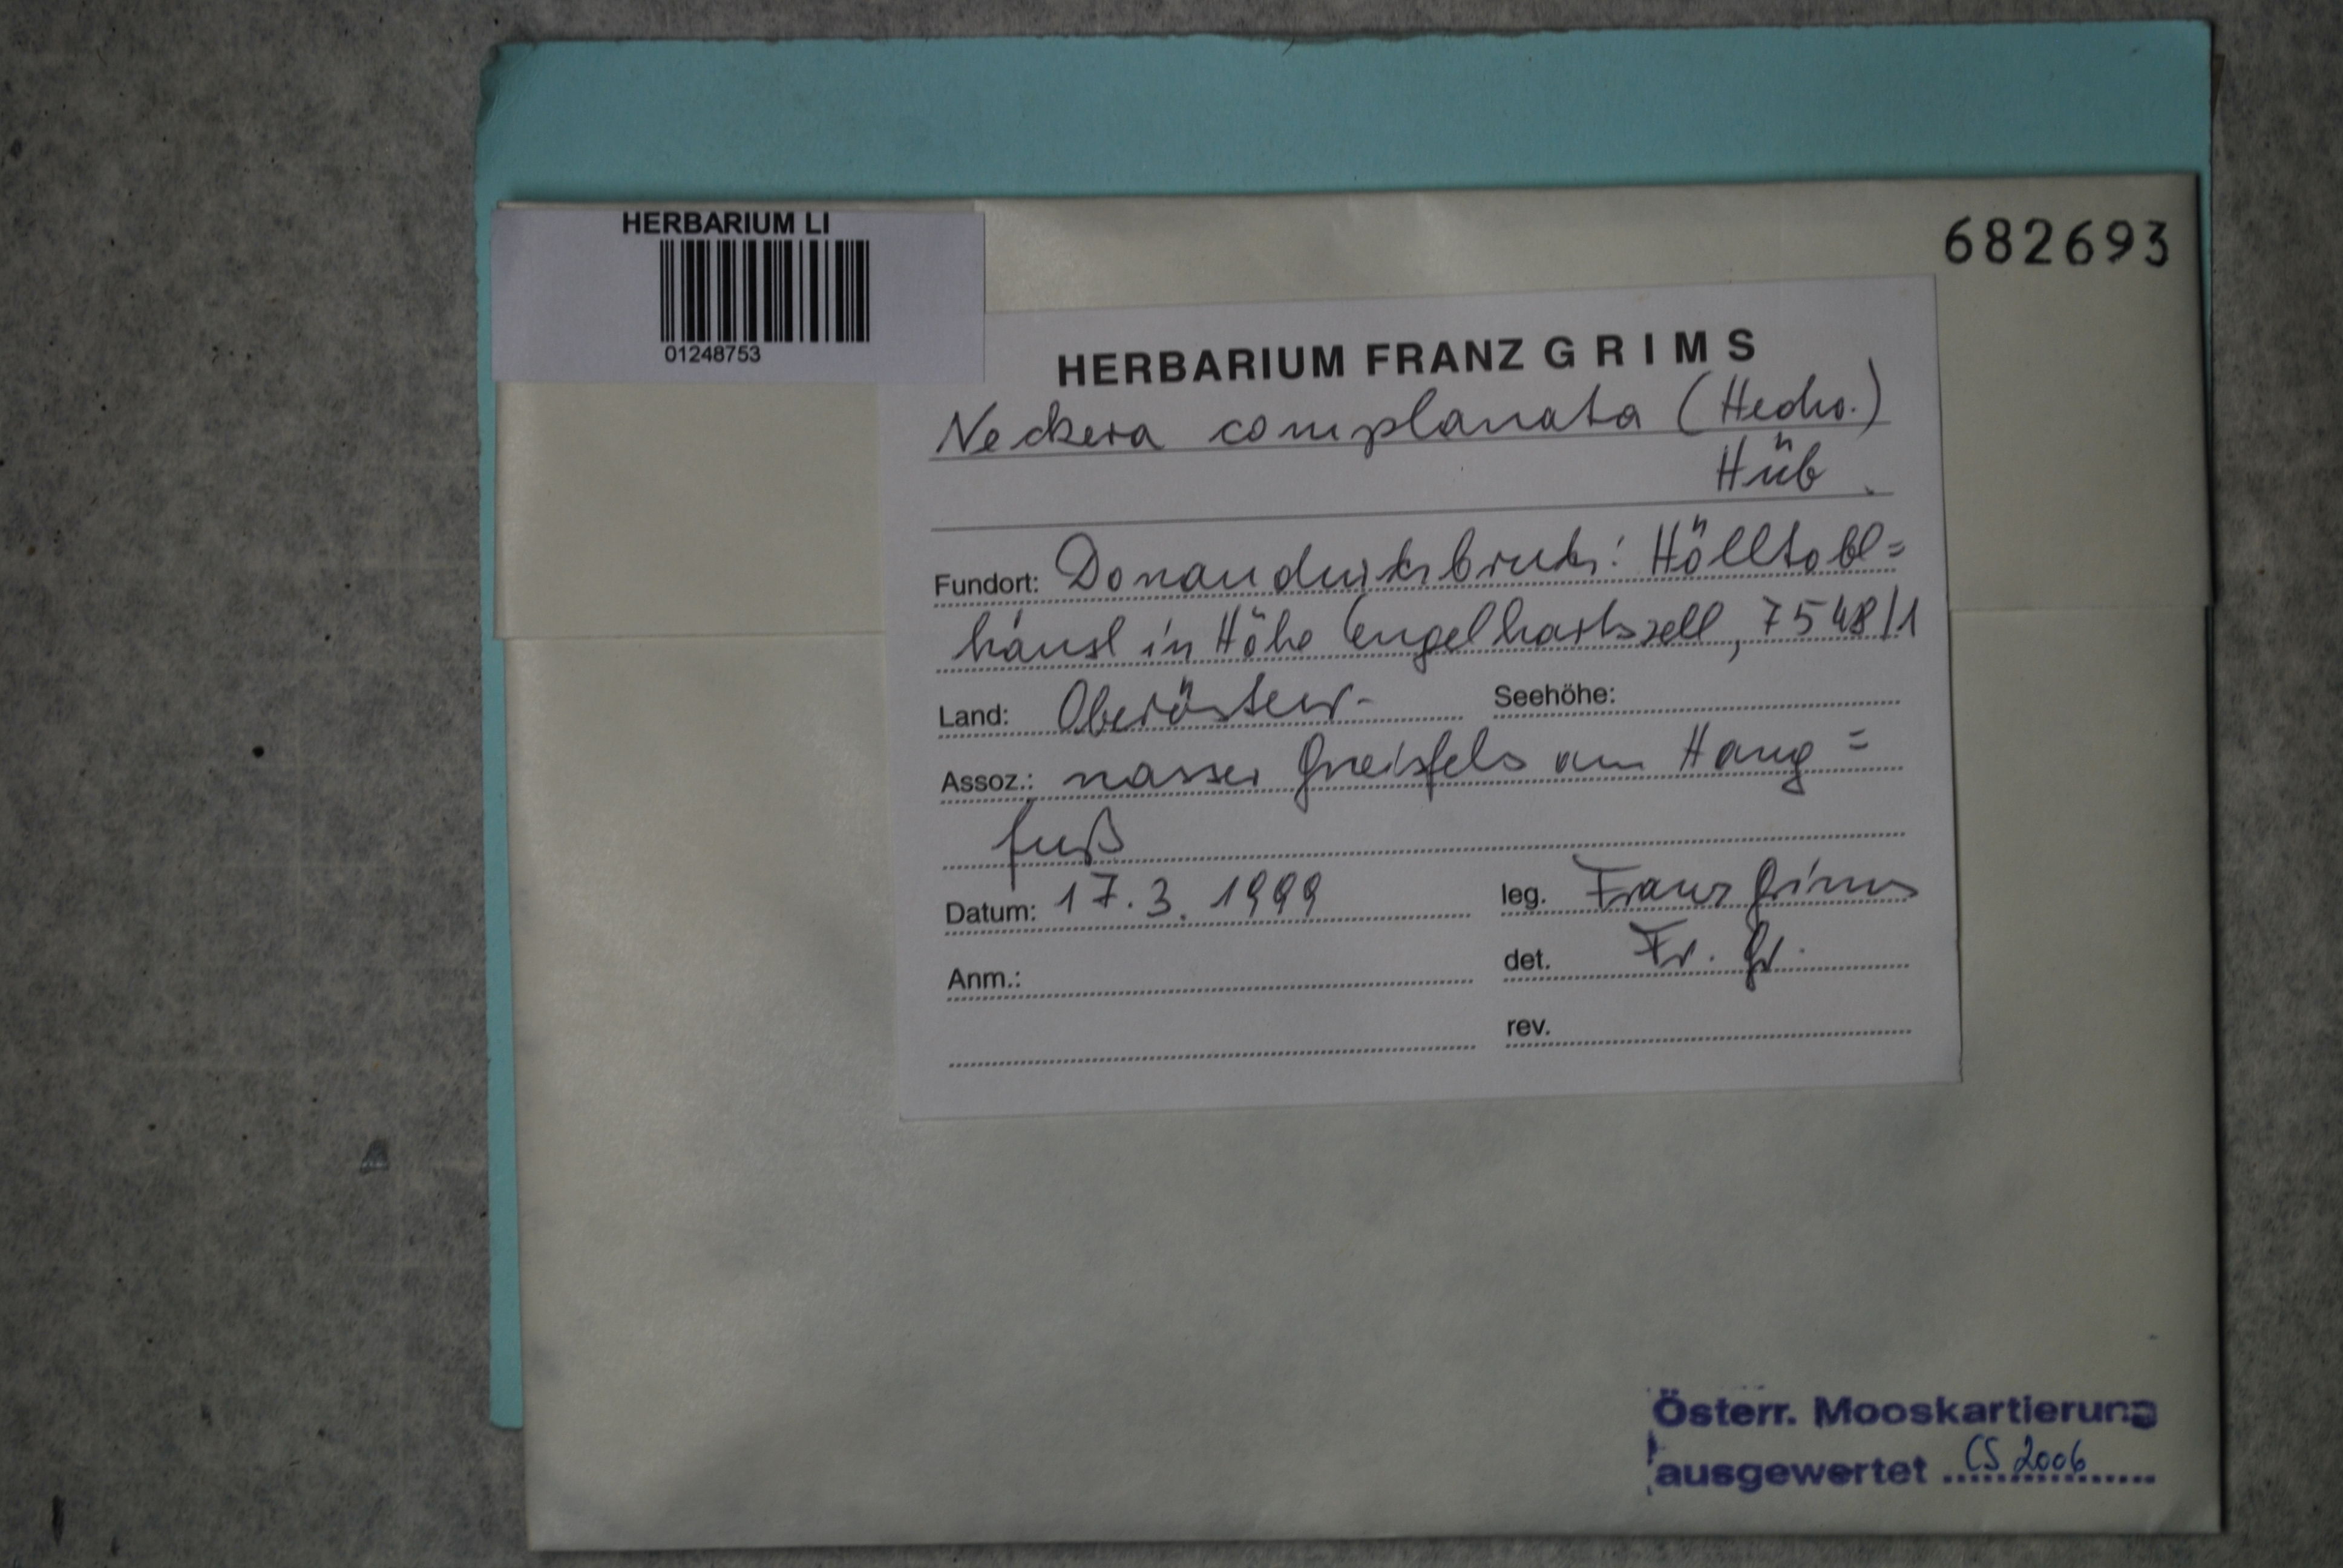 HERBARIUM LI
01248753
682693
HERBARIUM FRANZ GRIMS
Neckera complanata (Hedw.)
Hüb.
Fundort: Donaudurchbruch: Hölltobl=
häusl in Höhe Engelhartszell, 7548/1
Land: Oberösterr.
Seehöhe:
Assoz.: nasser Gneisfels am Hang=
fuß
Datum: 17.3.1999
leg. Franz Grims
Anm.:
det. Fr. Gr.
rev.
Österr. Mooskartierung
ausgewertet CS 2006